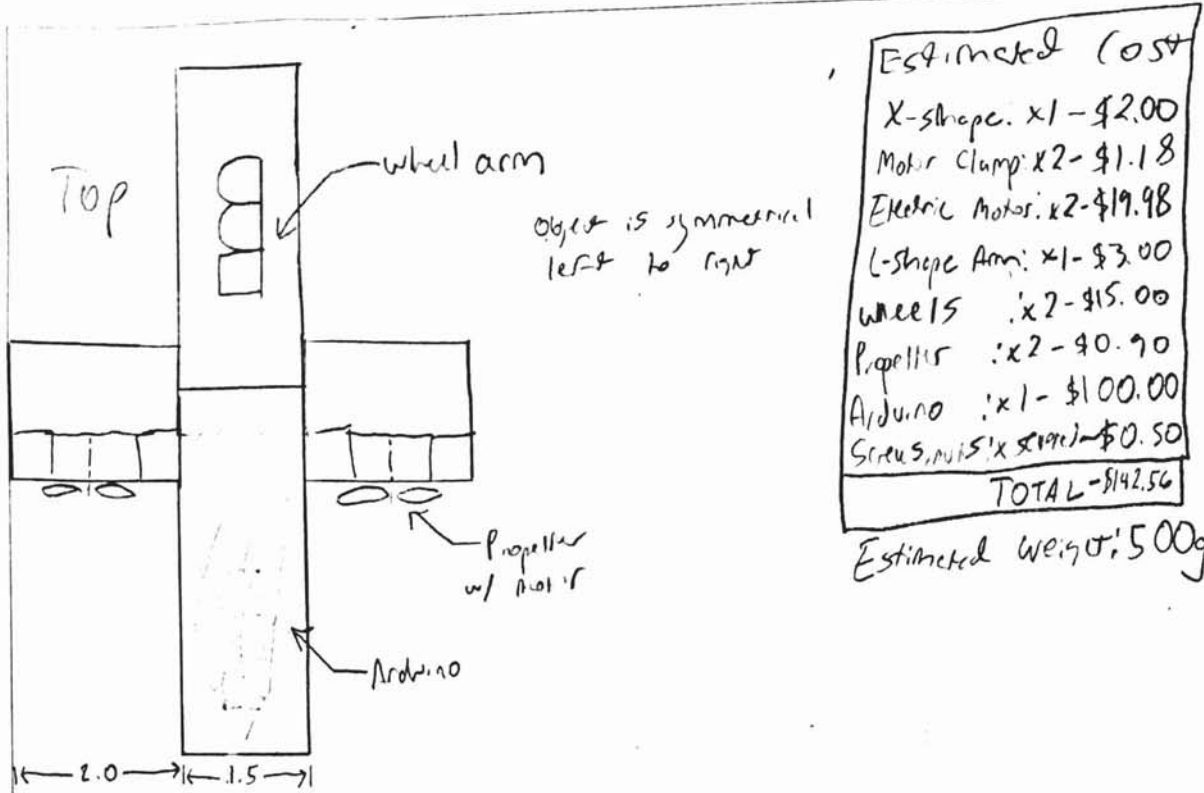 Top
wheel arm
Object is symmetrical
left to right
Propeller
w/ motor
Arduino
2.0
1.5
Estimated Cost
X-shape: x1 - $2.00
Motor Clamp: x2 - $1.18
Electric Motor: x2 - $19.98
L-shape Arm: x1 - $3.00
wheels : x2 - $15.00
Propeller : x2 - $0.90
Arduino : x1 - $100.00
Screws, nuts: x - $0.50
TOTAL - $142.56
Estimated weight: 500g